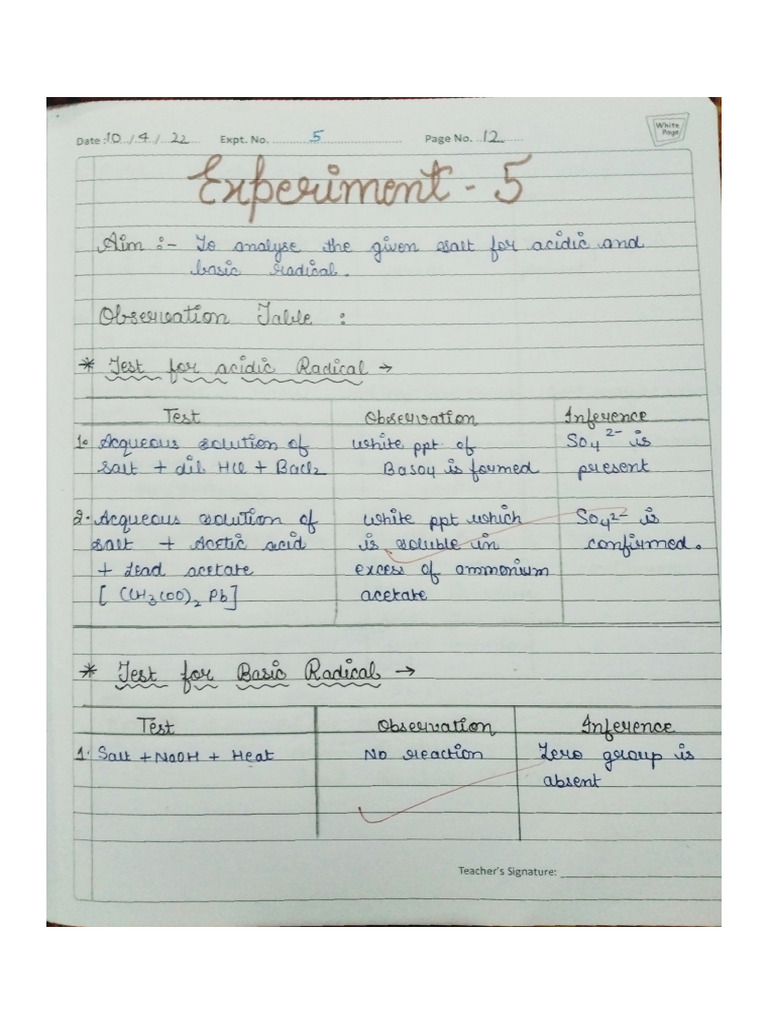 White
Page
Date :10 / 4 / 22 Expt. No. 5 Page No. 12
Experiment - 5
Aim :- To analyse the given salt for acidic and
basic radical.
Observation Table :
* Test for acidic Radical →
Test Observation Inference
1. Acqueous solution of white ppt. of SO4 2- is
salt + dil. HCl + BaCl2 BaSO4 is formed present
2. Acqueous solution of white ppt which SO4 2- is
salt + Acetic acid is soluble in confirmed.
+ Lead acetate excess of ammonium
[ (CH3COO)2 Pb] acetate
* Test for Basic Radical →
Test Observation Inference
1. Salt + NaOH + Heat No reaction Zero group is
absent
Teacher's Signature: